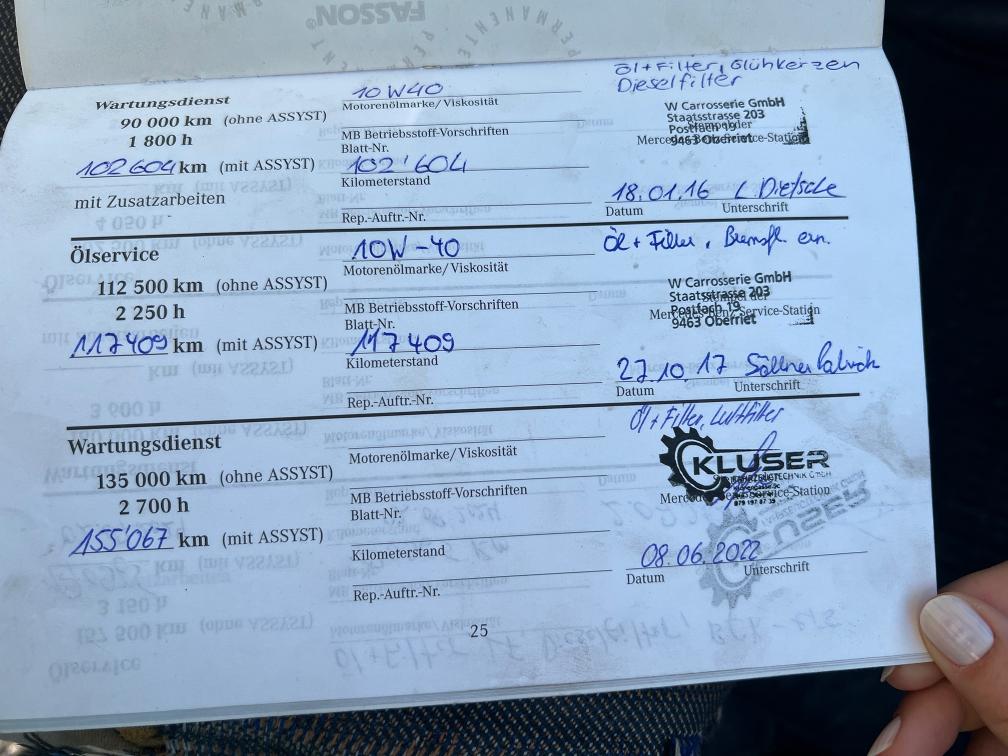 FASSON®
Wartungsdienst
90 000 km (ohne ASSYST)
1 800 h
102 604 km (mit ASSYST)
mit Zusatzarbeiten
10W40
Motorenölmarke/Viskosität
MB Betriebsstoff-Vorschriften
Blatt-Nr.
102'604
Kilometerstand
Rep.-Auftr.-Nr.
Öl+Filter, Glühkerzen
Dieselfilter
W Carrosserie GmbH
Staatsstrasse 203
Postfach 19
9463 Oberriet
18.01.16 L. Dietsche
Datum Unterschrift
Ölservice
112 500 km (ohne ASSYST)
2 250 h
117409 km (mit ASSYST)
10W-40
Motorenölmarke/Viskosität
MB Betriebsstoff-Vorschriften
Blatt-Nr.
117409
Kilometerstand
Rep.-Auftr.-Nr.
Öl + Filter, Bremsfl. ern.
W Carrosserie GmbH
Staatsstrasse 203
Postfach 19
9463 Oberriet
27.10.17
Datum Unterschrift
Wartungsdienst
135 000 km (ohne ASSYST)
2 700 h
155'067 km (mit ASSYST)
Motorenölmarke/Viskosität
MB Betriebsstoff-Vorschriften
Blatt-Nr.
Kilometerstand
Rep.-Auftr.-Nr.
Öl+Filter, Luftfilter
KLUSER
08.06.2022
Datum Unterschrift
25